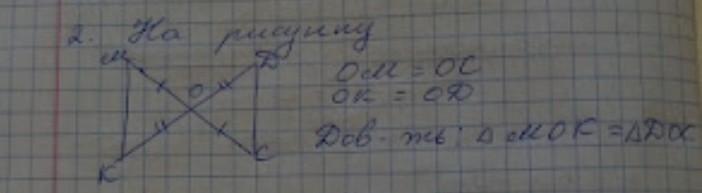 2. На рисунку
М Д
О
К С
ОМ = ОС
ОК = ОД
Дов-ть: △ МОК = △ДОС